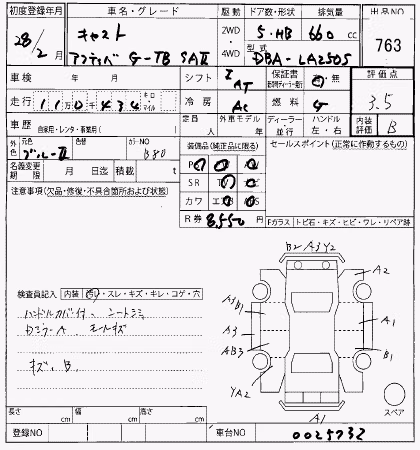 初度登録年月 車名・グレード 駆動 ドア数・形状 排気量 出品NO
28/2 キャスト 2WD 5・HB 660 cc 763
アクティバ G-TB SAⅡ 4WD 型式 DBA-LA250S
車検 年 月 シフト I AT 保証書 有・無 評価点
走行 110434 キロ マイル 冷房 AC 燃料 G 3.5
車歴 自家用・レンタ・事業用( ) 定員 人 外車モデル 年 ディーラー 並行 ハンドル 左・右 内装評価 B
外色 元色 ブルーⅡ 色替 カラーNO B80 装備品(純正品に限る) セールスポイント(正常に作動するもの)
名義変更期限 月 日迄 積載 t SR
注意事項(欠品・修復・不具合箇所および状態) カワ
R券 8,550 円 Fガラス トビ石・キズ・ヒビ・ワレ・リペア跡
B2 A3 Y2
A2
検査員記入 内装 ・スレ・キズ・キレ・コゲ・穴 A3 B1
ハンドルカバー付、シートシミ A3 A1
AB3 B1
キズ、B YA2
スペア
長さ cm 幅 cm 高さ cm A1
登録NO 車台NO 0025732